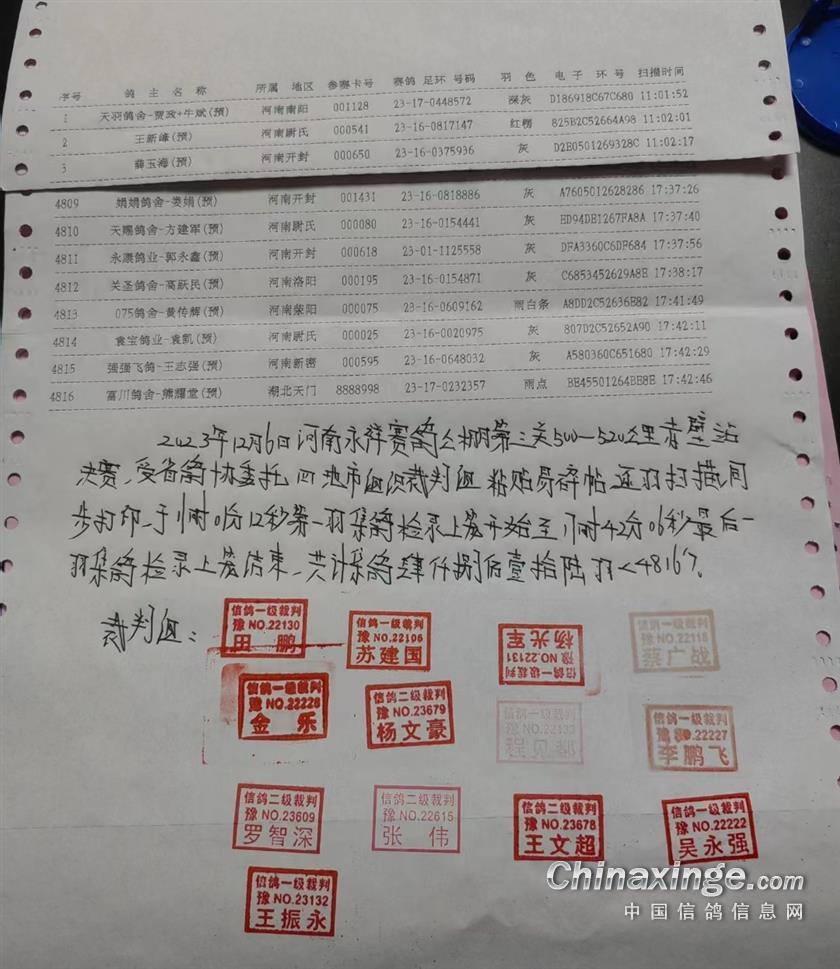 序号 鸽 主 名 称 所属 地区 参赛卡号 赛鸽 足环 号码 羽 色 电 子 环 号 扫描时间
1 天羽鸽舍-贾政+牛斌(预) 河南南阳 001128 23-17-0448572 深灰 D186918C67C680 11:01:52
2 王新峰(预) 河南尉氏 000541 23-16-0817147 红楞 825B2C52664A98 11:02:01
3 薛玉海(预) 河南开封 000650 23-16-0375936 灰 D2E0501269328C 11:02:17
4809 娟娟鸽舍-娄娟(预) 河南开封 001431 23-16-0818886 灰 A7605012628286 17:37:26
4810 天赐鸽舍-方建军(预) 河南尉氏 000080 23-16-0154441 灰 ED94DE1267FA8A 17:37:40
4811 永濮鸽业-郭永鑫(预) 河南开封 000618 23-01-1125558 灰 DFA3360C6DF684 17:37:56
4812 关圣鸽舍-高跃民(预) 河南洛阳 000195 23-16-0154871 灰 C6853452629A8E 17:38:17
4813 075鸽舍-黄传辉(预) 河南荥阳 000075 23-16-0609162 雨白条 A8DD2C52636E82 17:41:49
4814 袁宝鸽业-袁凯(预) 河南尉氏 000025 23-16-0020975 灰 807D2C52652A90 17:42:11
4815 强强飞鸽-王志强(预) 河南新密 000595 23-16-0648032 灰 A580360C651680 17:42:29
4816 富川鸽舍-熊耀堂(预) 湖北天门 8888998 23-17-0232357 雨点 BE45501264BE8E 17:42:46
2023年12月6日河南永祥赛鸽公棚第三关500—520公里赤壁站
决赛、受省鸽协委托 四地市组织裁判组 粘贴易碎帖 逐羽扫描同
步打印、于11时01分12秒第一羽集鸽检录上笼开始至17时42分06秒最后一
羽集鸽检录上笼结束、共计集鸽肆仟捌佰壹拾陆羽<4816>.
裁判组:
信鸽一级裁判
豫NO.22130
田 鹏
信鸽一级裁判
豫NO.22106
苏建国
信鸽一级裁判
豫NO.22131
杨光军
信鸽一级裁判
豫NO.22118
蔡广战
信鸽一级裁判
豫NO.22226
金 乐
信鸽二级裁判
豫NO.23679
杨文豪
信鸽一级裁判
信鸽一级裁判
豫NO.22227
李鹏飞
信鸽二级裁判
豫NO.23609
罗智深
信鸽二级裁判
豫NO.22615
张 伟
信鸽二级裁判
豫NO.23678
王文超
信鸽一级裁判
豫NO.22222
吴永强
信鸽一级裁判
豫NO.23132
王振永
Chinaxinge.com
中国信鸽信息网